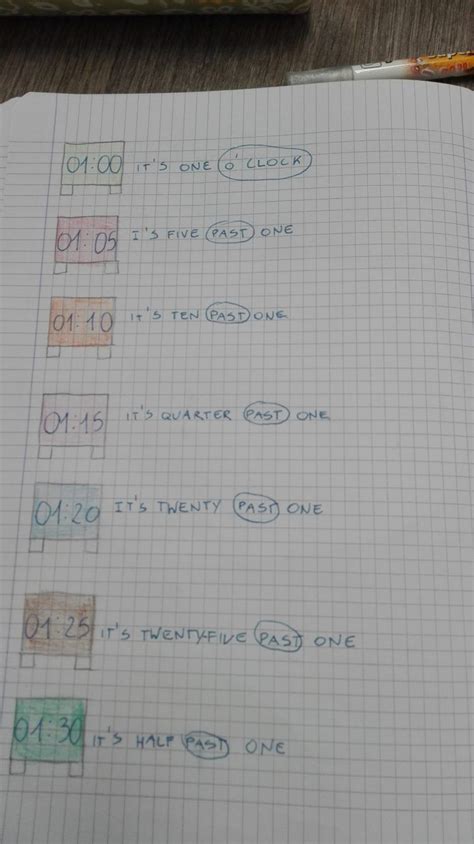 01:00 IT'S ONE O'CLOCK
01:05 I'S FIVE PAST ONE
01:10 IT'S TEN PAST ONE
01:15 IT'S QUARTER PAST ONE
01:20 IT'S TWENTY PAST ONE
01:25 IT'S TWENTY-FIVE PAST ONE
01:30 IT'S HALF PAST ONE